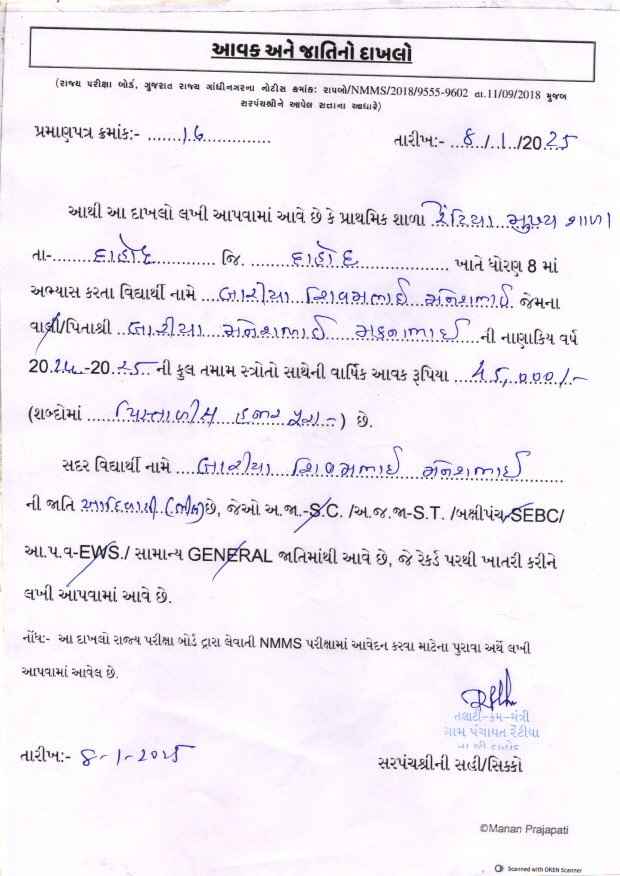 આવક અને જાતિનો દાખલો
(રાજ્ય પરીક્ષા બોર્ડ, ગુજરાત રાજ્ય ગાંધીનગરના નોટીસ ક્રમાંક: રાપબો/NMMS/2018/9555-9602 તા.11/09/2018 મુજબ
સરપંચશ્રીને આપેલ સત્તાના આધારે)
પ્રમાણપત્ર ક્રમાંક:- .......16............... તારીખ:- ..8../..1../2025
આથી આ દાખલો લખી આપવામાં આવે છે કે પ્રાથમિક શાળા રેંટિયા મુખ્ય શાળા
તા-......દાહોદ.......... જિ. .......દાહોદ............... ખાતે ધોરણ 8 માં
અભ્યાસ કરતા વિદ્યાર્થી નામે ...બારીયા શિવમભાઈ મનેશભાઈ. જેમના
વાલી/પિતાશ્રી ..બારીયા મનેશભાઈ મડનભાઈ.....ની નાણાકિય વર્ષ
2024.-2025.. ની કુલ તમામ સ્ત્રોતો સાથેની વાર્ષિક આવક રૂપિયા ...45,000/-
(શબ્દોમાં ....પિસ્તાળીસ હજાર પુરા..-) છે.
સદર વિદ્યાર્થી નામે ....બારીયા શિવમભાઈ મનેશભાઈ......
ની જાતિ આદિવાસી.(ભીલ)છે, જેઓ અ.જા.-S.C. /અ.જ.જા-S.T. /બક્ષીપંચ-SEBC/
આ.પ.વ-EWS./ સામાન્ય GENERAL જાતિમાંથી આવે છે, જે રેકર્ડ પરથી ખાતરી કરીને
લખી આપવામાં આવે છે.
નોંધ:- આ દાખલો રાજ્ય પરીક્ષા બોર્ડ દ્વારા લેવાતી NMMS પરીક્ષામાં આવેદન કરવા માટેના પુરાવા અર્થે લખી
આપવામાં આવેલ છે.
તલાટી-કમ-મંત્રી
ગ્રામ પંચાયત રેંટીયા
તા.જી.દાહોદ
તારીખ:- 8-1-2025
સરપંચશ્રીની સહી/સિક્કો
©Manan Prajapati
Scanned with OKEN Scanner